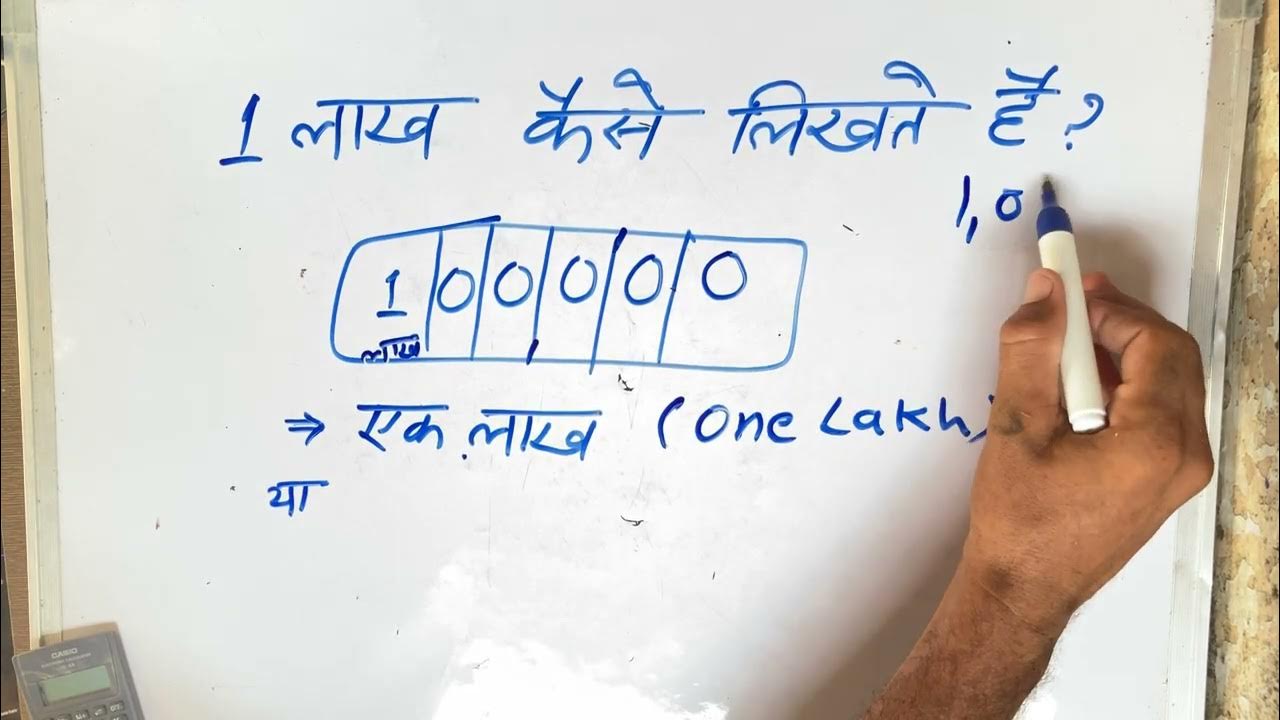 1 लाख कैसे लिखते है?
1,0
1 0 0 0 0 0
लाख
⇒ एक लाख (One Lakh)
या
CASIO